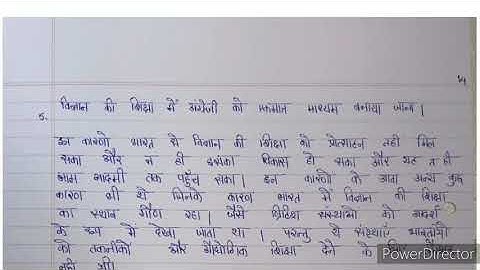 ५
5. विज्ञान की शिक्षा में अंग्रेजी को एकमात्र माध्यम बनाया जाना।
इन कारणो भारत से विज्ञान की शिक्षा को प्रोत्साहन नही मिल
सका और न ही इसका विकास हो सका और यह न ही
आम आदमी तक पहुँच सका। इन कारणो के अलावा अन्य कुछ
कारण भी थे जिनके कारण भारत में विज्ञान की शिक्षा
का स्थान गौण रहा। जैसे ब्रिटिश संस्थाओ को आदर्श
के रूप में देखा जाता था। परन्तु ये संस्थाएं भारतीयो
को तकनीकी और औद्योगिक शिक्षा देने के लिए
नही थी।
PowerDirector